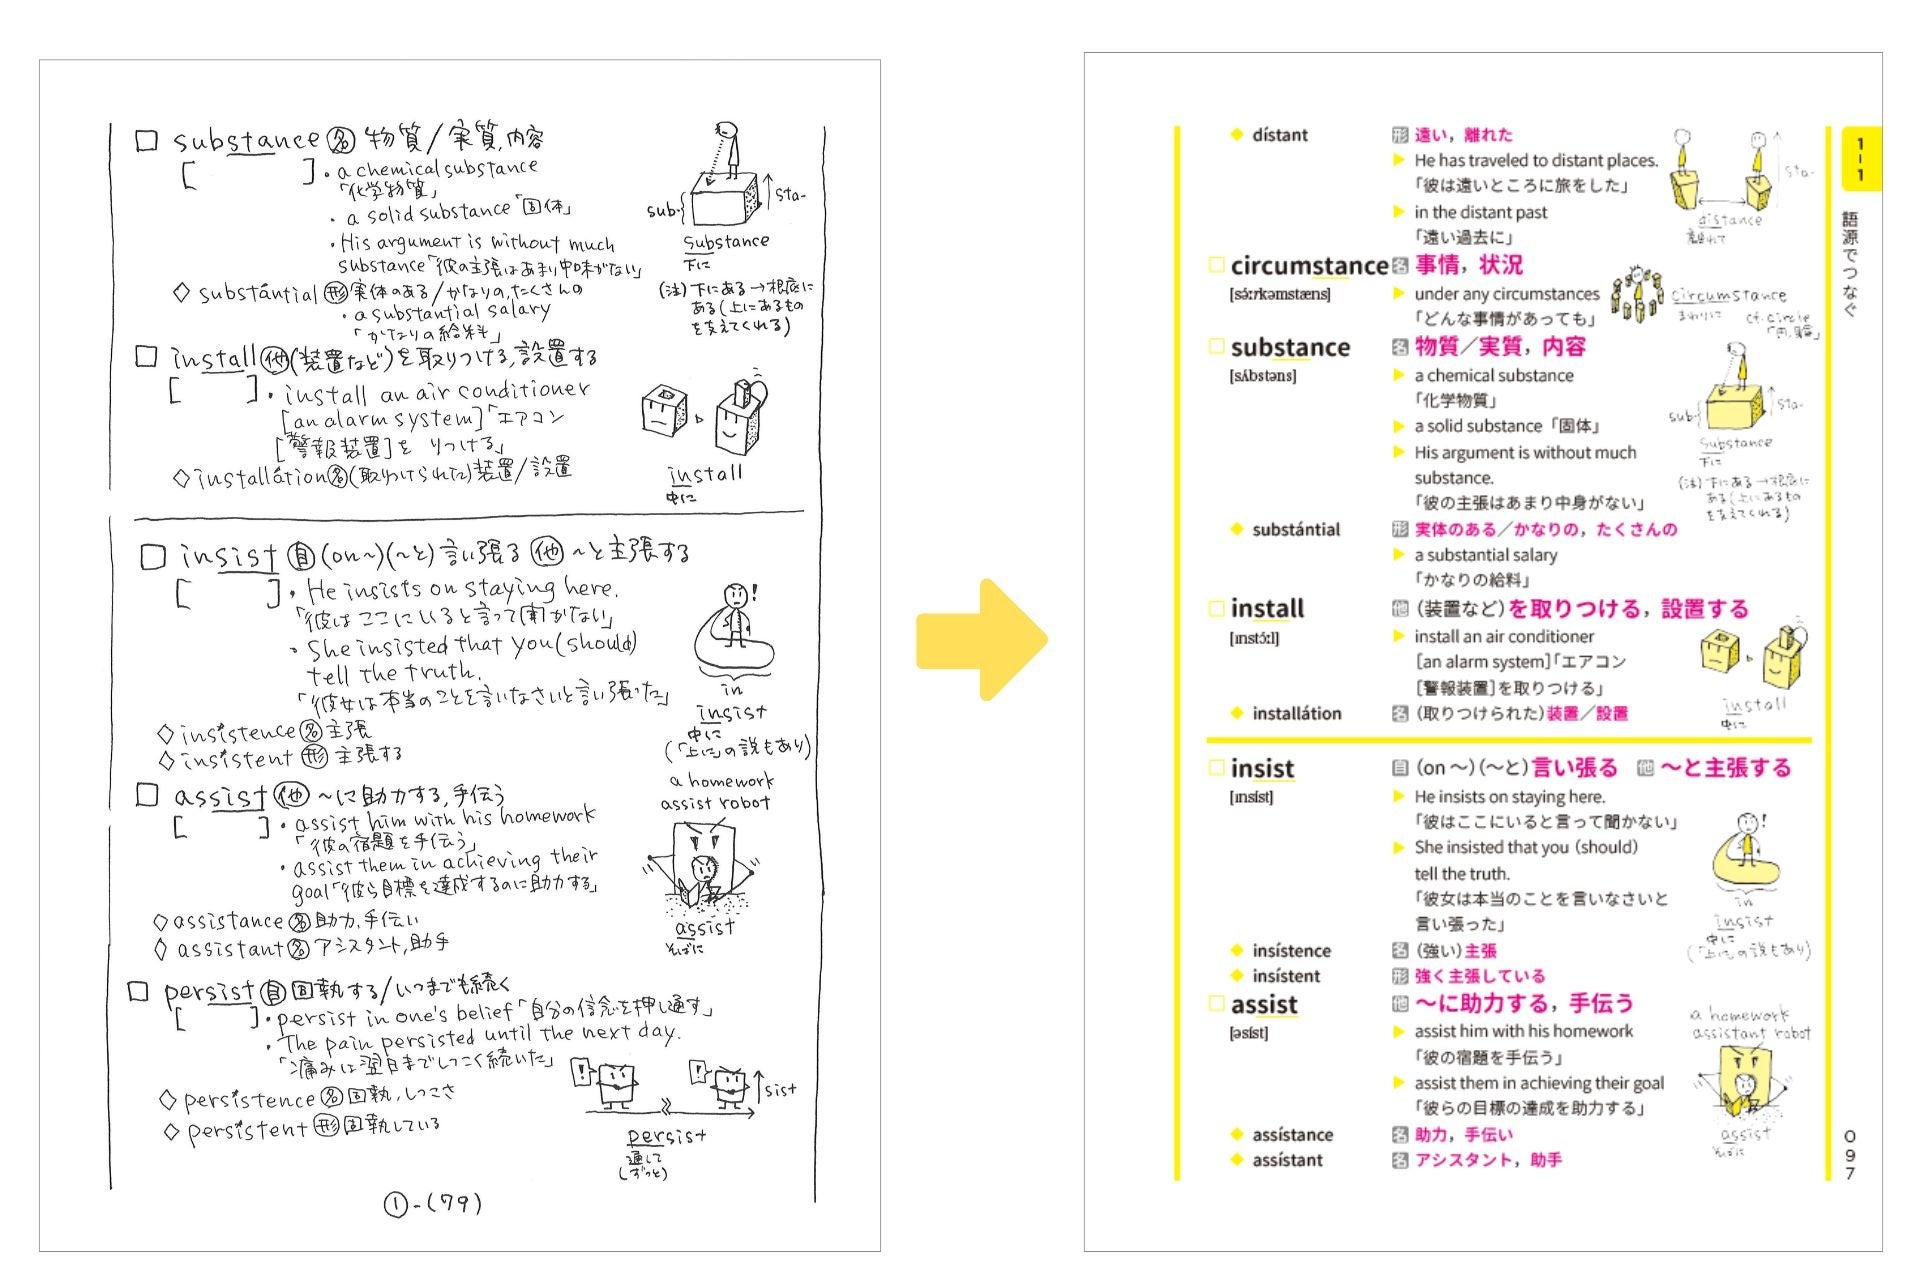 □ substance 名 物質/実質,内容
[ ]・a chemical substance
「化学物質」
・a solid substance「固体」
・His argument is without much
substance「彼の主張はあまり中味がない」
◇ substántial 形 実体のある/かなりの,たくさんの
・a substantial salary
「かなりの給料」
sub-
sta-
substance
下に
(注)下にある→根底に
ある(上にあるもの
を支えてくれる)
□ install 他 (装置など)を取りつける,設置する
[ ]・install an air conditioner
[an alarm system]「エアコン
[警報装置]を りつける」
◇ installátion 名 (取りつけられた)装置/設置
install
中に
□ insist 自 (on~)(~と)言い張る 他 ~と主張する
[ ]・He insists on staying here.
「彼はここにいると言って聞かない」
・She insisted that you (should)
tell the truth.
「彼女は本当のことを言いなさいと言い張った」
◇ insístence 名 主張
◇ insístent 形 主張する
!
in
insist
中に
(「上に」の説もあり)
□ assist 他 ~に助力する,手伝う
[ ]・assist him with his homework
「彼の宿題を手伝う」
・assist them in achieving their
goal「彼ら目標を達成するのに助力する」
◇ assistance 名 助力,手伝い
◇ assistant 名 アシスタント,助手
a homework
assist robot
assist
そばに
□ persist 自 固執する/いつまでも続く
[ ]・persist in one's belief「自分の信念を押し通す」
・The pain persisted until the next day.
「痛みは翌日までしつこく続いた」
◇ persístence 名 固執,しつこさ
◇ persístent 形 固執している
!
!
sist
persist
通して
(ずっと)
①-(79)
◆ dístant 形 遠い，離れた
▶ He has traveled to distant places.
「彼は遠いところに旅をした」
▶ in the distant past
「遠い過去に」
sta-
distance
離れて
□ circumstance 名 事情，状況
[sə́ːrkəmstæns] ▶ under any circumstances
「どんな事情があっても」
circumstance
まわりに
cf. circle
「円,輪」
□ substance 名 物質／実質，内容
[sʌ́bstəns] ▶ a chemical substance
「化学物質」
▶ a solid substance「固体」
▶ His argument is without much
substance.
「彼の主張はあまり中身がない」
◆ substántial 形 実体のある／かなりの，たくさんの
▶ a substantial salary
「かなりの給料」
sub-
sta-
substance
下に
(注)下にある→根底に
ある(上にあるもの
を支えてくれる)
□ install 他 (装置など)を取りつける，設置する
[ɪnstɔ́ːl] ▶ install an air conditioner
[an alarm system]「エアコン
[警報装置]を取りつける」
◆ installátion 名 (取りつけられた)装置／設置
install
中に
□ insist 自 (on ～)(～と)言い張る 他 ～と主張する
[ɪnsíst] ▶ He insists on staying here.
「彼はここにいると言って聞かない」
▶ She insisted that you (should)
tell the truth.
「彼女は本当のことを言いなさいと
言い張った」
◆ insístence 名 (強い)主張
◆ insístent 形 強く主張している
!
in
insist
中に
(「上に」の説もあり)
□ assist 他 ～に助力する，手伝う
[əsíst] ▶ assist him with his homework
「彼の宿題を手伝う」
▶ assist them in achieving their goal
「彼らの目標の達成を助力する」
◆ assístance 名 助力，手伝い
◆ assístant 名 アシスタント，助手
a homework
assistant robot
assist
そばに
1-1
語源でつなぐ
097